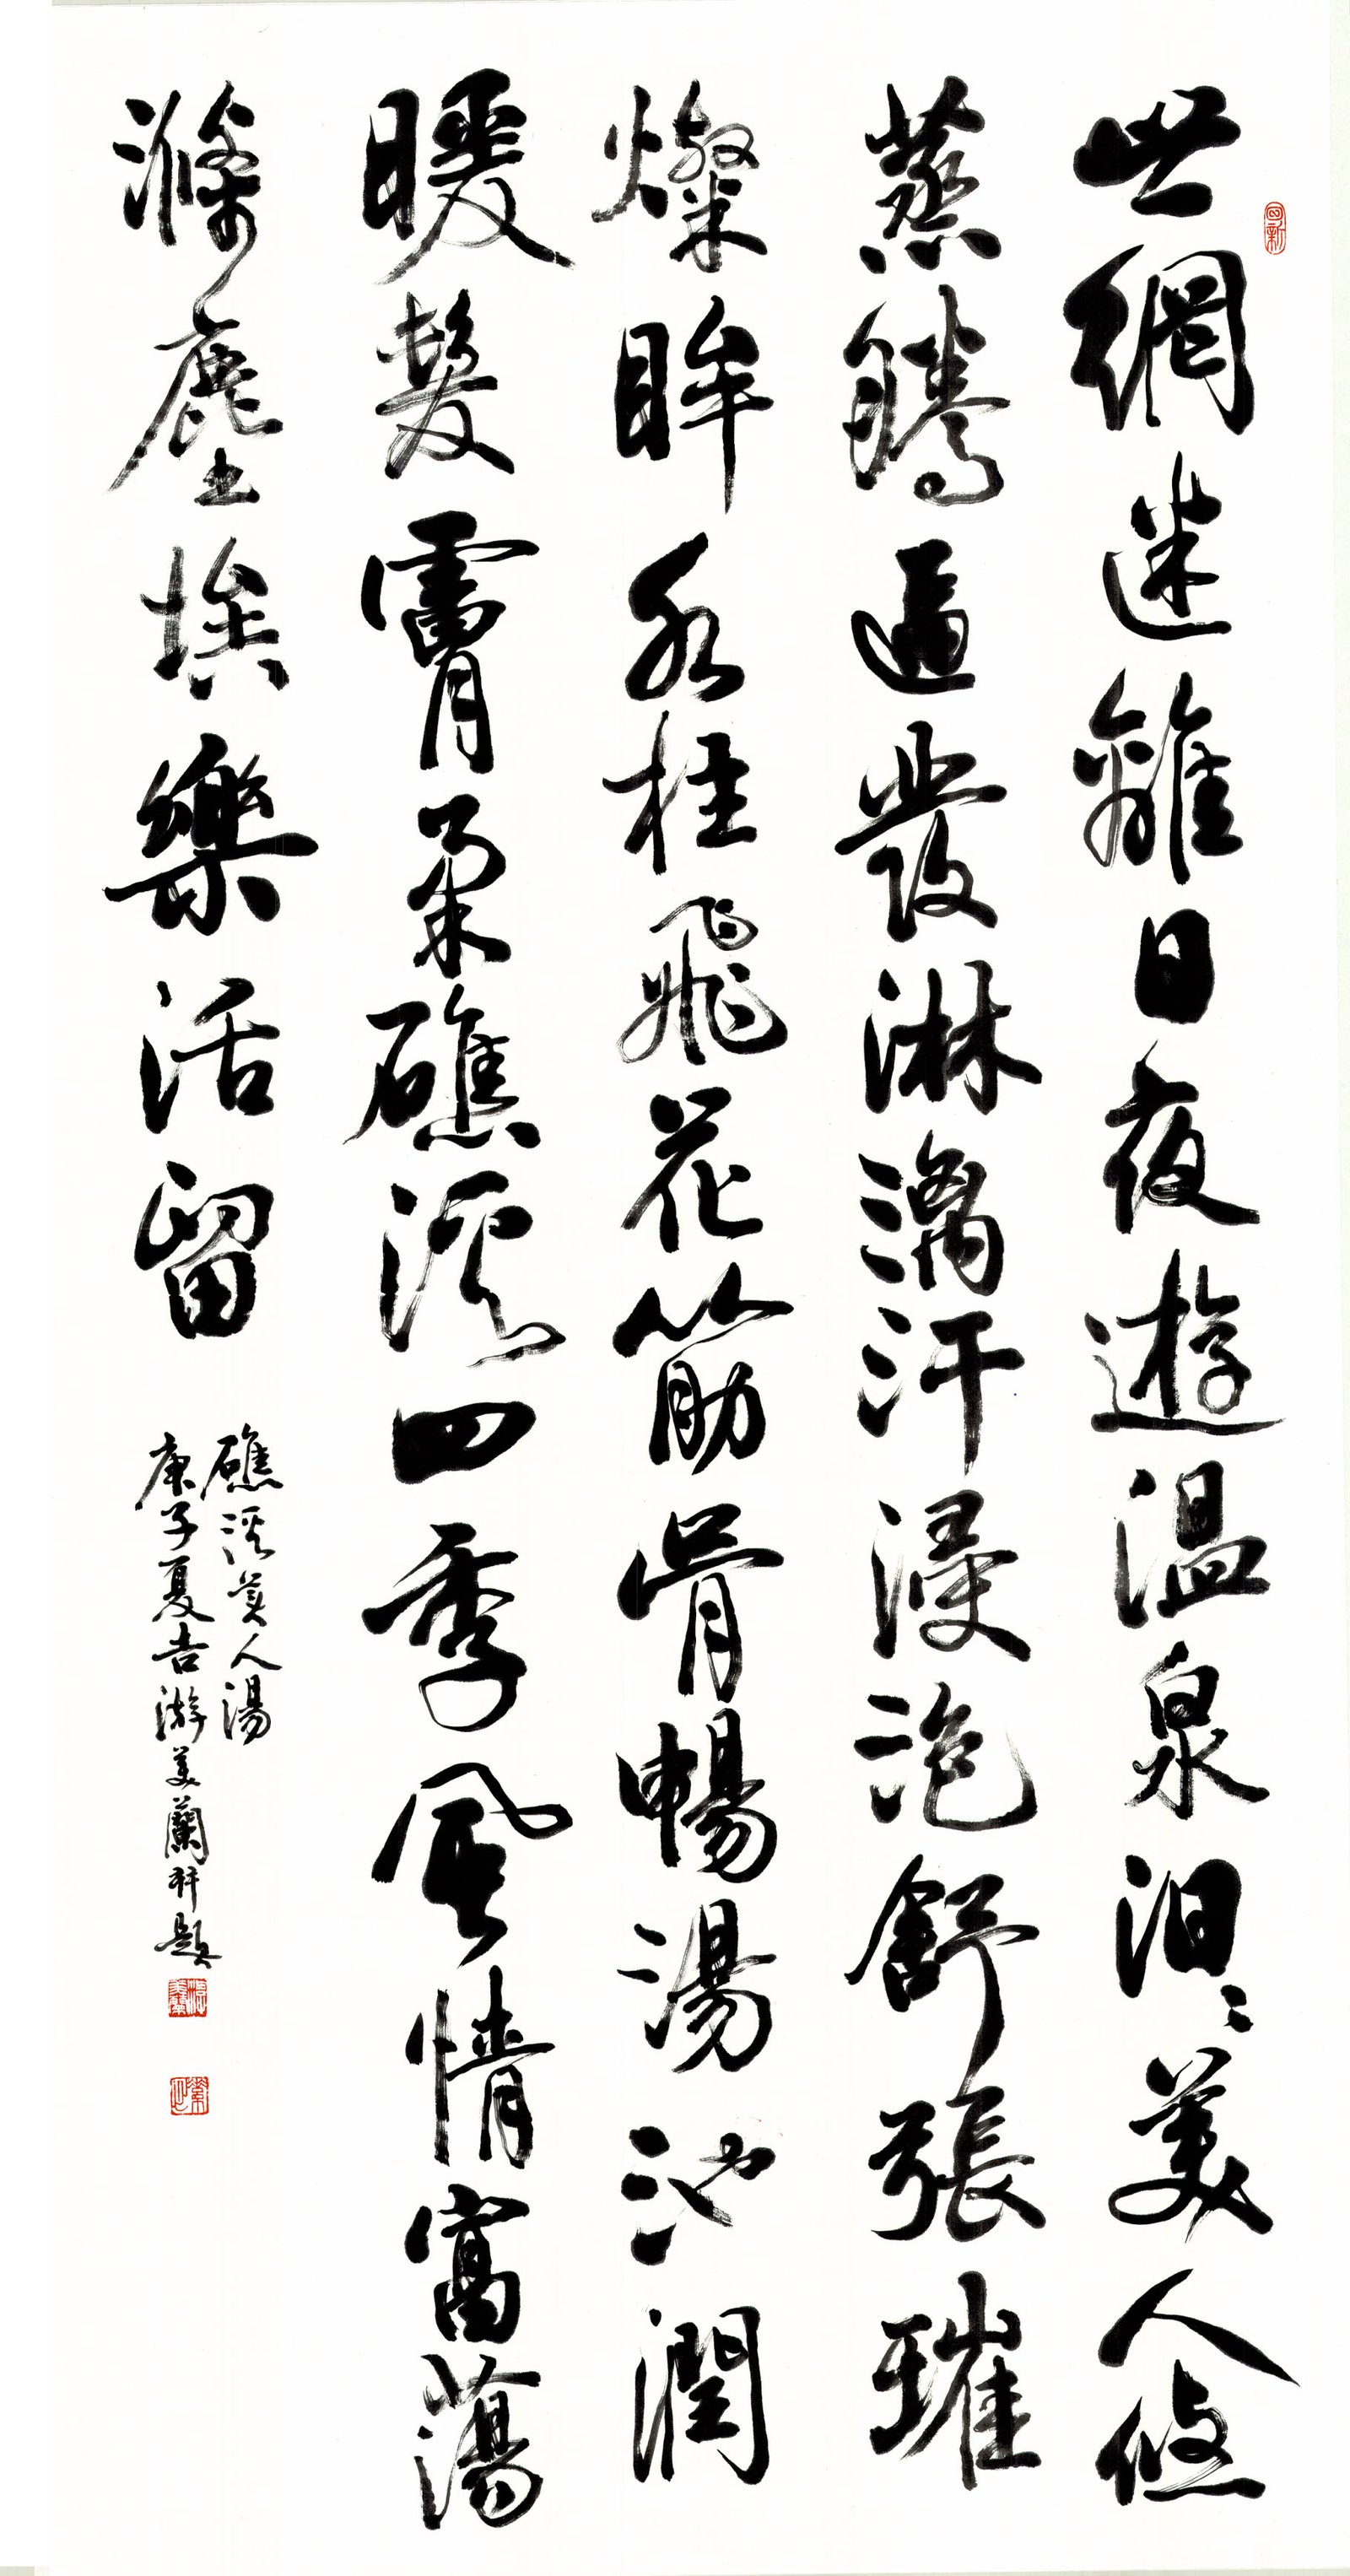 世網迷離日夜遊溫泉汩〻美人悠
蒸騰逼發淋漓汗浸泡舒張璀
燦眸水柱飛花筋骨暢湯池潤
暖髮膚柔礁溪四季風情富蕩
滌塵埃樂活留
礁溪美人湯
庚子夏吉游美蘭并題